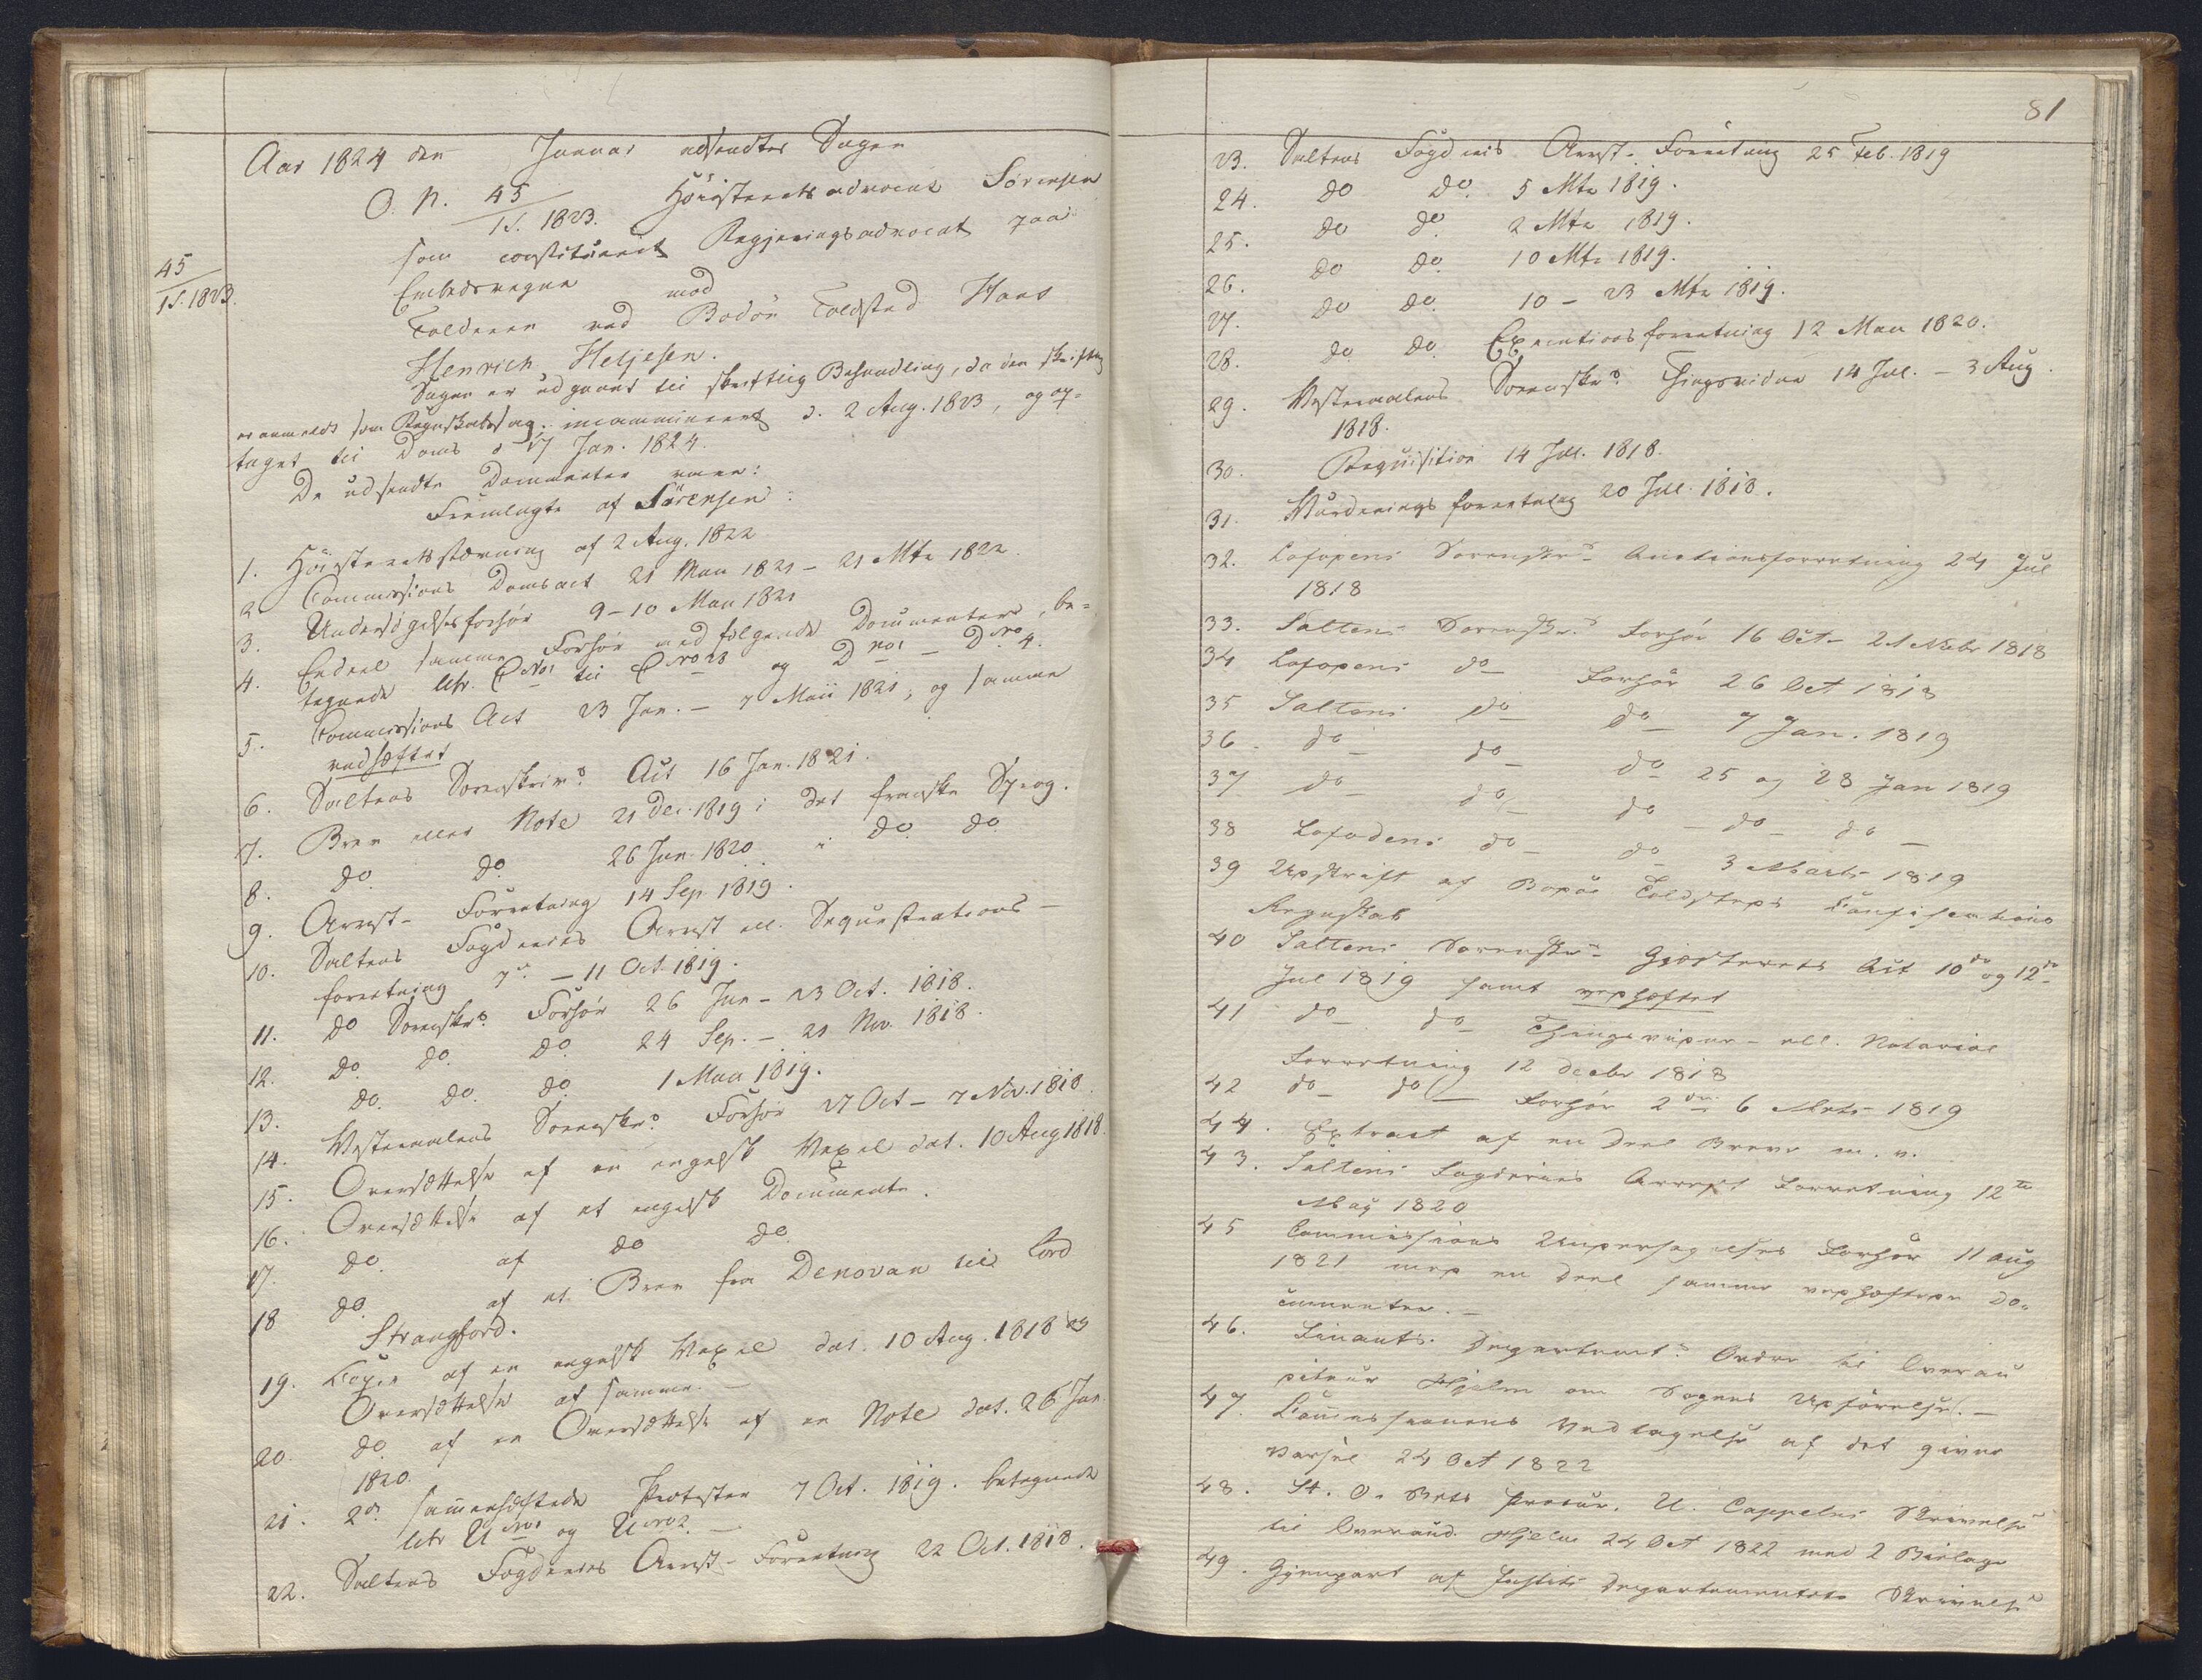 Aar 1824 den Januar udsendtes Sagen
O. N. 45/1S. 1823. Höiesteretsadvocat Sörensen
som constitueret Regjeringsadvocat paa
Embedsvegne mod
45/1S. 1823.
Tolderen ved Bodöe Toldsted Hans
Henrich Heltzesen.
Sagen er udgaaet til skriftlig Behandling, da den skriftlig
er anmeldt som Regnskabssag. incammineret d. 2 Aug. 1823, og op-
taget til Doms d 17 Jan. 1824.
De udsendte Documenter vare:
Fremlagte af Sörensen:
1. Höiesteretsstævning af 2 Aug. 1822
2 Commissions Domsact 21 Mai 1821 - 21 Mts 1822.
3. Undersögelsesforhör 9-10 Mai 1821
4. Endeel samme Forhör medfölgende Documenter, be-
tegnede Litr. C No 1 til C No 23 og D No 1 - D No 4.
5. Commissions Act 23 Jan. - 7 Maii 1821, og samme
vedhæftet
6. Saltens Sorenskriv. Act 16 Jan. 1821.
7. Brev eller Note 21 Dec. 1819 i det franske Sprog.
8. do do 26 Jan 1820 i do do
9. Arrest-Forretning 14 Sep 1819.
10. Saltens Fogderies Arrest ell. Sequestrations-
forretning 7de - 11 Oct. 1819.
11. do Sorenskr. Forhör 26 Jun - 23 Oct. 1818.
12. do do do 24 Sep. - 21 Nov. 1818.
13. do do do 1 Mai 1819.
14. Vesteraalens Sorenskr. Forhör 27 Oct - 7 Nov. 1818.
15. Oversættelse af en engelsk Vexel dat. 10 Aug 1818.
16. Oversættelse af et engelsk Document.
17. do af do do
18 do af et Brev fra Denovan til Lord
Strangford.
19. Copie af en engelsk Vexel dat. 10 Aug. 1818 og
Oversættelse af samme. —
20. do af en Oversættelse af en Note dat. 26 Jan.
1820.
21. 2de sammenhæftede Protester 7 Oct. 1819. betegnede
Litr U No 1 og U No 2. —
22. Saltens Fogderies Arrest-Forretning 22 Oct. 1818.
81
23. Saltens Fogderies Arrest-Forretning 25 Feb. 1819
24. do do 5 Mts 1819.
25. do do 2 Mts 1819.
26. do do 10 Mts 1819.
27. do do 10 - 23 Mts 1819.
28. do do Executionsforretning 12 Mai 1820.
29. Vesteraalens Sorenskr. Thingsvidne 14 Jul. - 3 Aug.
1818.
30. Requisition 14 Jul. 1818.
31. Vurderings forretning 20 Jul. 1818.
32. Lofodens Sorenskr. Auctionsforretning 24 Jul
1818
33. Saltens Sorenskr. Forhör 16 Oct - 21 Novbr 1818
34 Lofodens do Forhör 26 Oct 1818
35 Saltens do do 7 Jan. 1819
36. do do do 25 og 28 Jan 1819
37 do do do do do
38 Lofodens do do 3 Marts 1819
39 Udskrift af Bodöe Toldsteds Confiscations
Regnskab
40 Saltens Sorenskr. Gjesterets Act 10de og 12te
Jul 1819 samt vedhæftet
41 do do Thingsvidne- ell. Notarial
Forretning 12 Decbr 1818
42 do do Forhör 2den 6 Mrts 1819
44. Extract af en Deel Breve m. v.
43. Saltens Fogderies Arrest Forretning 12te
May 1820
45 Commissions Undersögelses Forhör 11 Aug
1821 med en Deel samme vedhæftede Do-
cumenter. —
46. Finants-Departemts Ordre til Overau
diteur Hjelm om Sagens Udförelse. —
47. Commissionens Vedtagelse af det givne
Varsel 24 Oct 1822
48. St. O. Rets Procur. U. Cappelens Skrivelse
til Overaud. Hjelm 24 Oct 1822 med 2 Bielage
49. Gjenpart af Justits Departementets Skrivelse